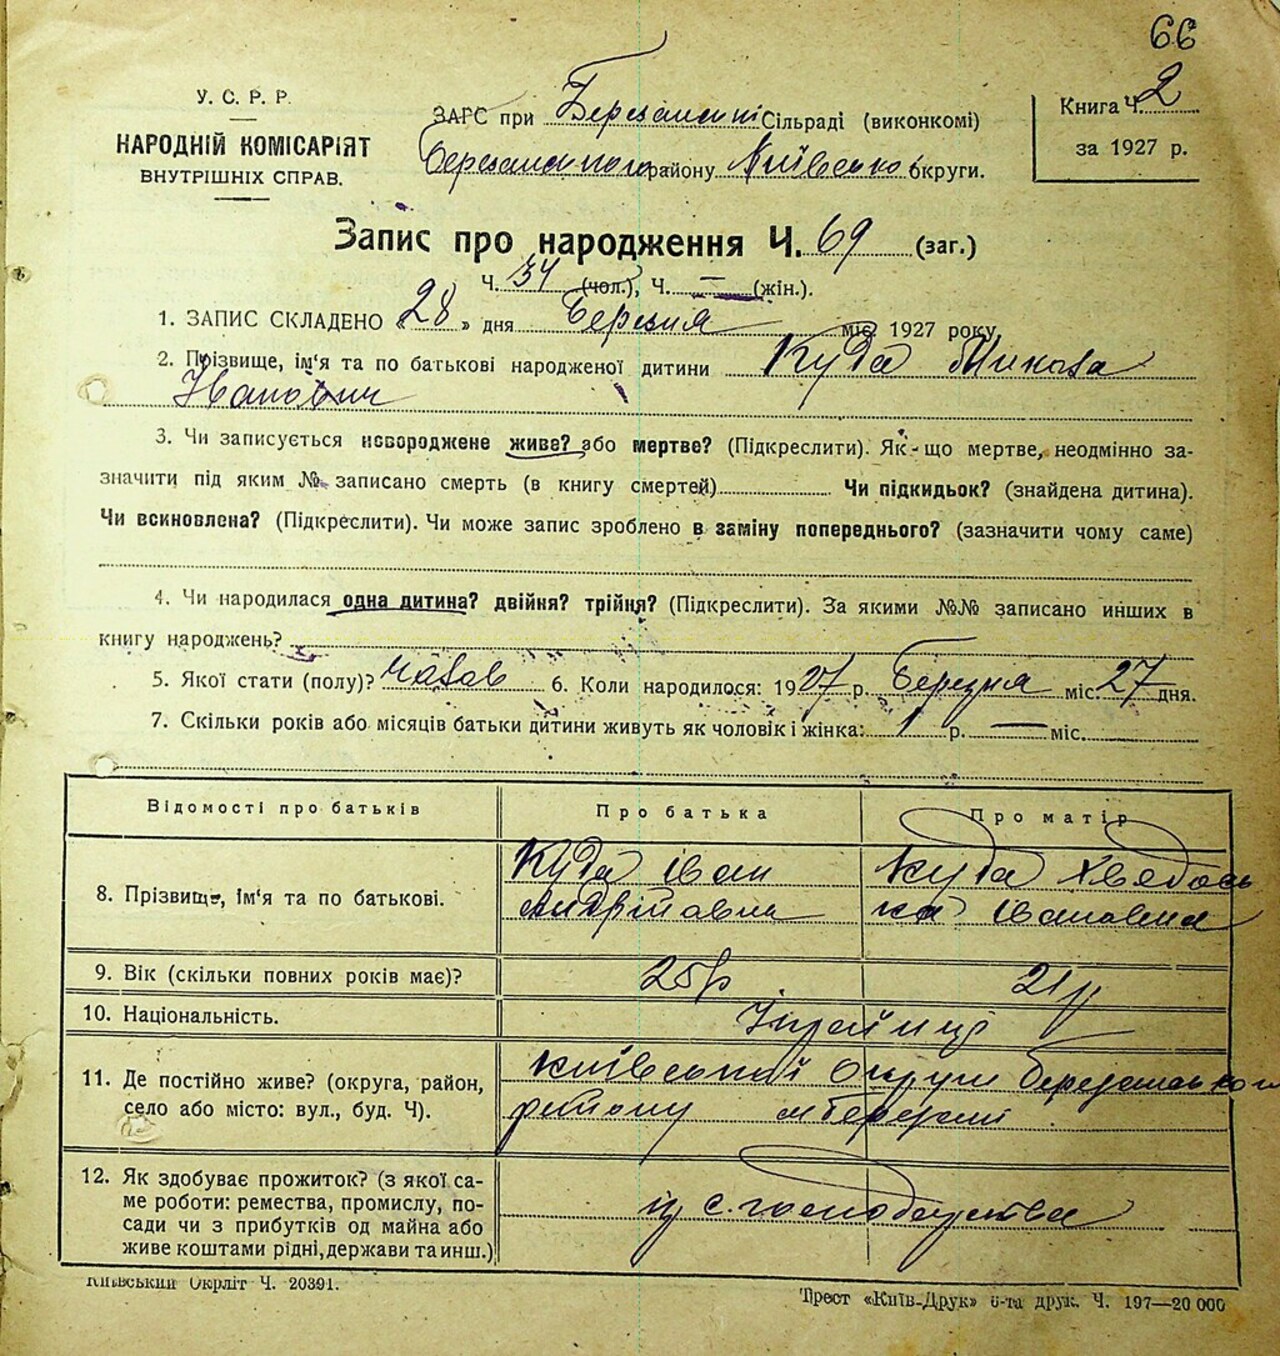 66
У. С. Р. Р.
НАРОДНІЙ КОМІСАРІЯТ
ВНУТРІШНІХ СПРАВ.
ЗАГС при Березанській Сільраді (виконкомі)
Березанського району Київсько округи.
Книга Ч. 2
за 1927 р.
Запис про народження Ч. 69 (заг.)
Ч. 34 (чол.), Ч. — (жін.).
1. ЗАПИС СКЛАДЕНО «28» дня Березня міс. 1927 року.
2. Прізвище, ім'я та по батькові народженої дитини Куда Микола
Іванович
3. Чи записується новороджене живе? або мертве? (Підкреслити). Як-що мертве, неодмінно за-
значити під яким № записано смерть (в книгу смертей) Чи підкидьок? (знайдена дитина).
Чи всиновлена? (Підкреслити). Чи може запис зроблено в заміну попереднього? (зазначити чому саме)
4. Чи народилася одна дитина? двійня? трійня? (Підкреслити). За якими №№ записано инших в
книгу народжень?
5. Якої стати (полу)? 6. Коли народилося: 1927 р. Березня міс. 27 дня.
7. Скільки років або місяців батьки дитини живуть як чоловік і жінка: 1 р. — міс.
Відомості про батьків Про батька Про матір
8. Прізвище, ім'я та по батькові.
Куда Іван
Андрійович
Куда Хведось
ка Івановна
9. Вік (скільки повних років має)? 25 р 21 р
10. Національність. Українці
11. Де постійно живе? (округа, район,
село або місто: вул., буд. Ч).
Київської Округи Березанського
району м Березані
12. Як здобуває прожиток? (з якої са-
ме роботи: ремества, промислу, по-
сади чи з прибутків од майна або
живе коштами рідні, держави та инш.)
із с. господарства
Київський Окрліт Ч. 20391.
Трест «Київ-Друк» 6-та друк. Ч. 197—20 000